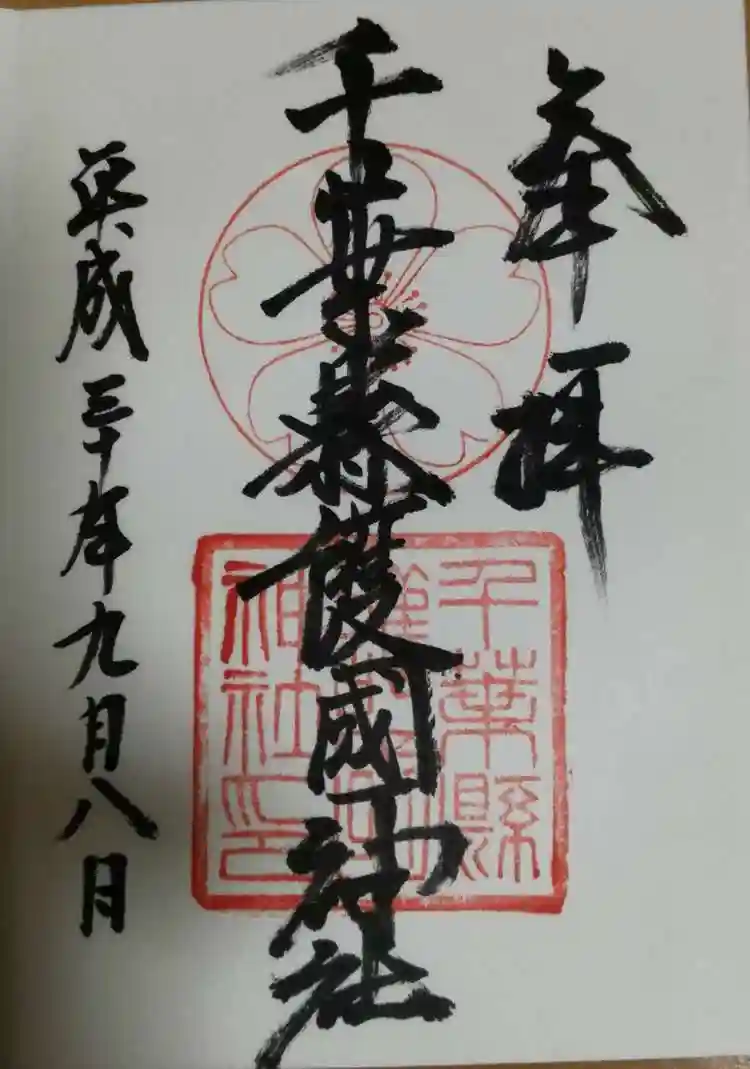 奉拝
千葉縣護國神社
平成三十年九月八日
千葉縣
護國
神社印